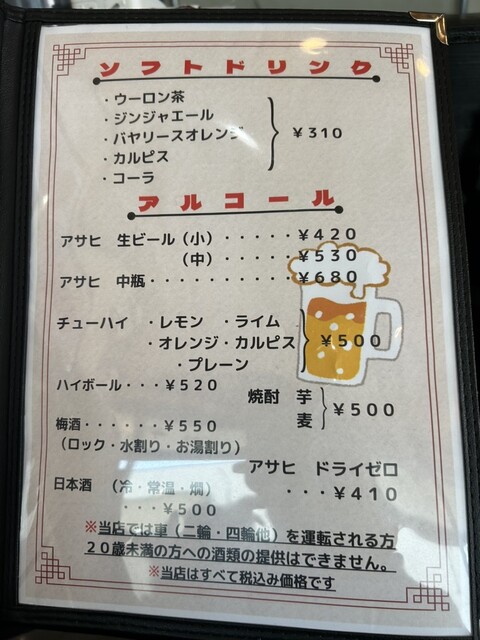 ソフトドリンク
・ウーロン茶
・ジンジャエール
・バヤリースオレンジ
・カルピス
・コーラ
¥310
アルコール
アサヒ 生ビール（小）・・・・・¥420
（中）・・・・・¥530
アサヒ 中瓶・・・・・・・・・・¥680
チューハイ ・レモン ・ライム
・オレンジ・カルピス
・プレーン
¥500
ハイボール・・・¥520
焼酎 芋
麦
¥500
梅酒・・・・・・¥550
（ロック・水割り・お湯割り）
アサヒ ドライゼロ
・・・¥410
日本酒 （冷・常温・燗）
・・・¥500
※当店では車（二輪・四輪他）を運転される方
２０歳未満の方への酒類の提供はできません。
※当店はすべて税込み価格です